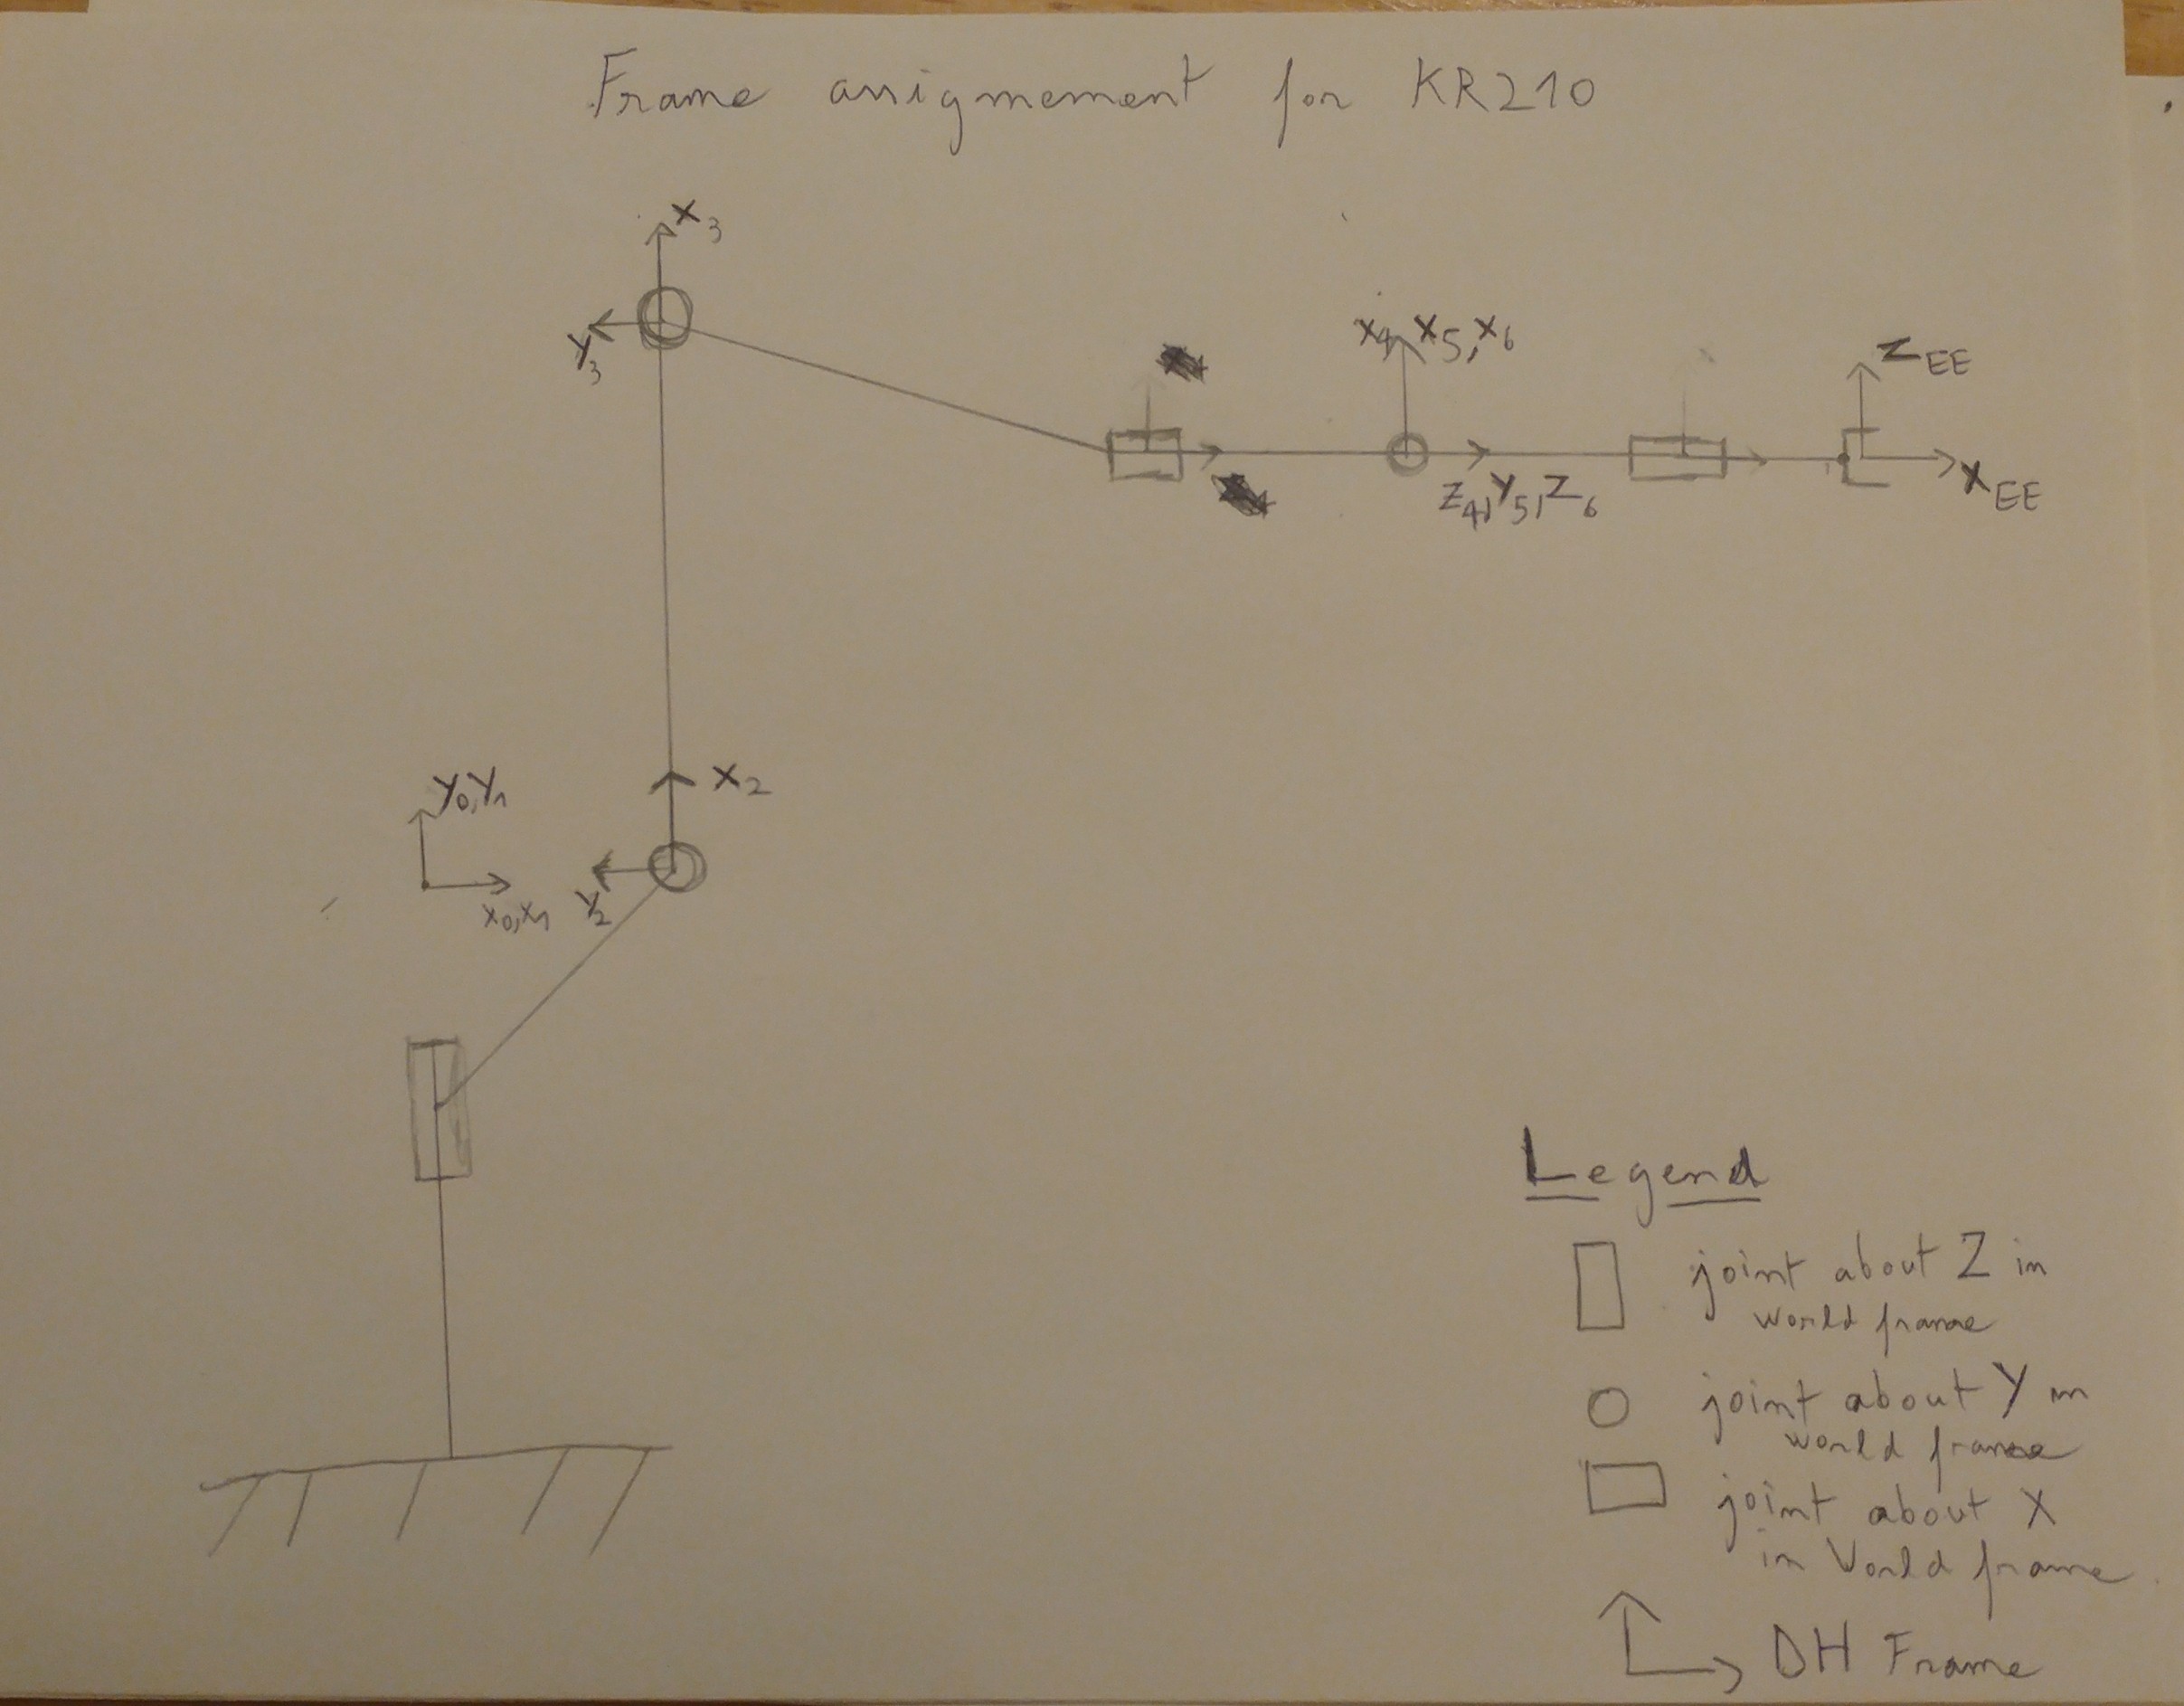 Frame assigmement for KR210
X3
Y3
X4, X5, X6
ZEE
Z4, Y5, Z6
XEE
Y0, Y1
X2
X0, X1
Y2
Legend
joint about Z in
world frame
joint about Y in
world frame
joint about X
in World frame
DH Frame